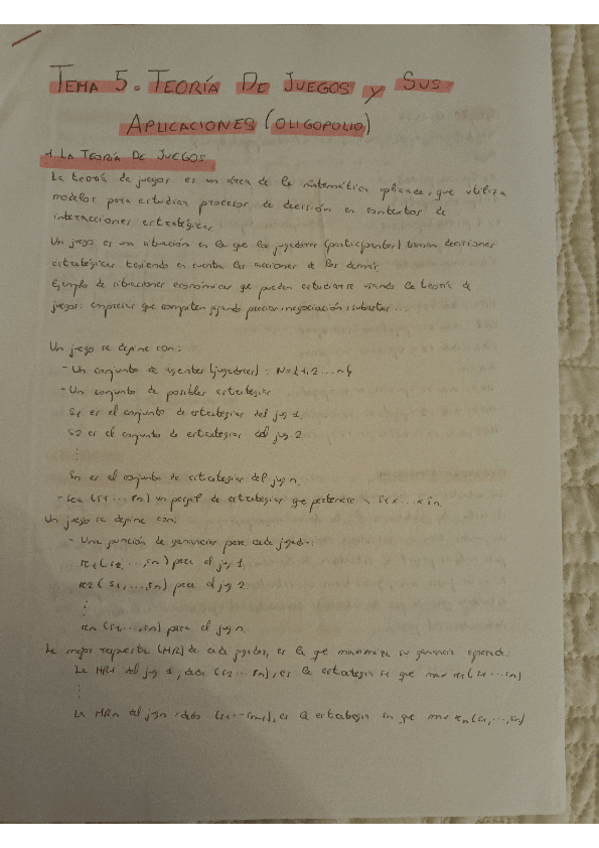 TEMA 5. TEORÍA DE JUEGOS Y SUS
APLICACIONES (OLIGOPOLIO)
1. LA TEORÍA DE JUEGOS
La teoría de juegos es un área de la matemática aplicada, que utiliza
modelos para estudiar procesos de decisión en contextos de
interacciones estratégicas
Un juego es una situación en la que los jugadores (participantes) toman decisiones
estratégicas teniendo en cuenta las acciones de los demás
Ejemplo de situaciones económicas que pueden estudiarse usando la teoría de
juegos: empresas que compiten fijando precios, negociación, subastas...
Un juego se define con:
- Un conjunto de agentes (jugadores): N={1,2...n}
- Un conjunto de posibles estrategias
S1 es el conjunto de estrategias del jug 1
S2 es el conjunto de estrategias del jug 2
⋮
Sn es el conjunto de estrategias del jug n
- Sea (s1...sn) un perfil de estrategias que pertenece a S1x...xSn
Un juego se define con:
- Una función de ganancias para cada jugador:
(s2,...,sn) para el jug 1
(s1,...,sn) para el jug 2
⋮
(s1,...,sn) para el jug n
La mejor respuesta (MR) de cada jugador, es la que maximiza su ganancia
La MR1 del jug 1, dado (s2...sn), es la estrategia que max (s1...sn)
⋮
La MRn del jug n dado (s1...sn-1), es la estrategia sn que max (s1,...,sn)